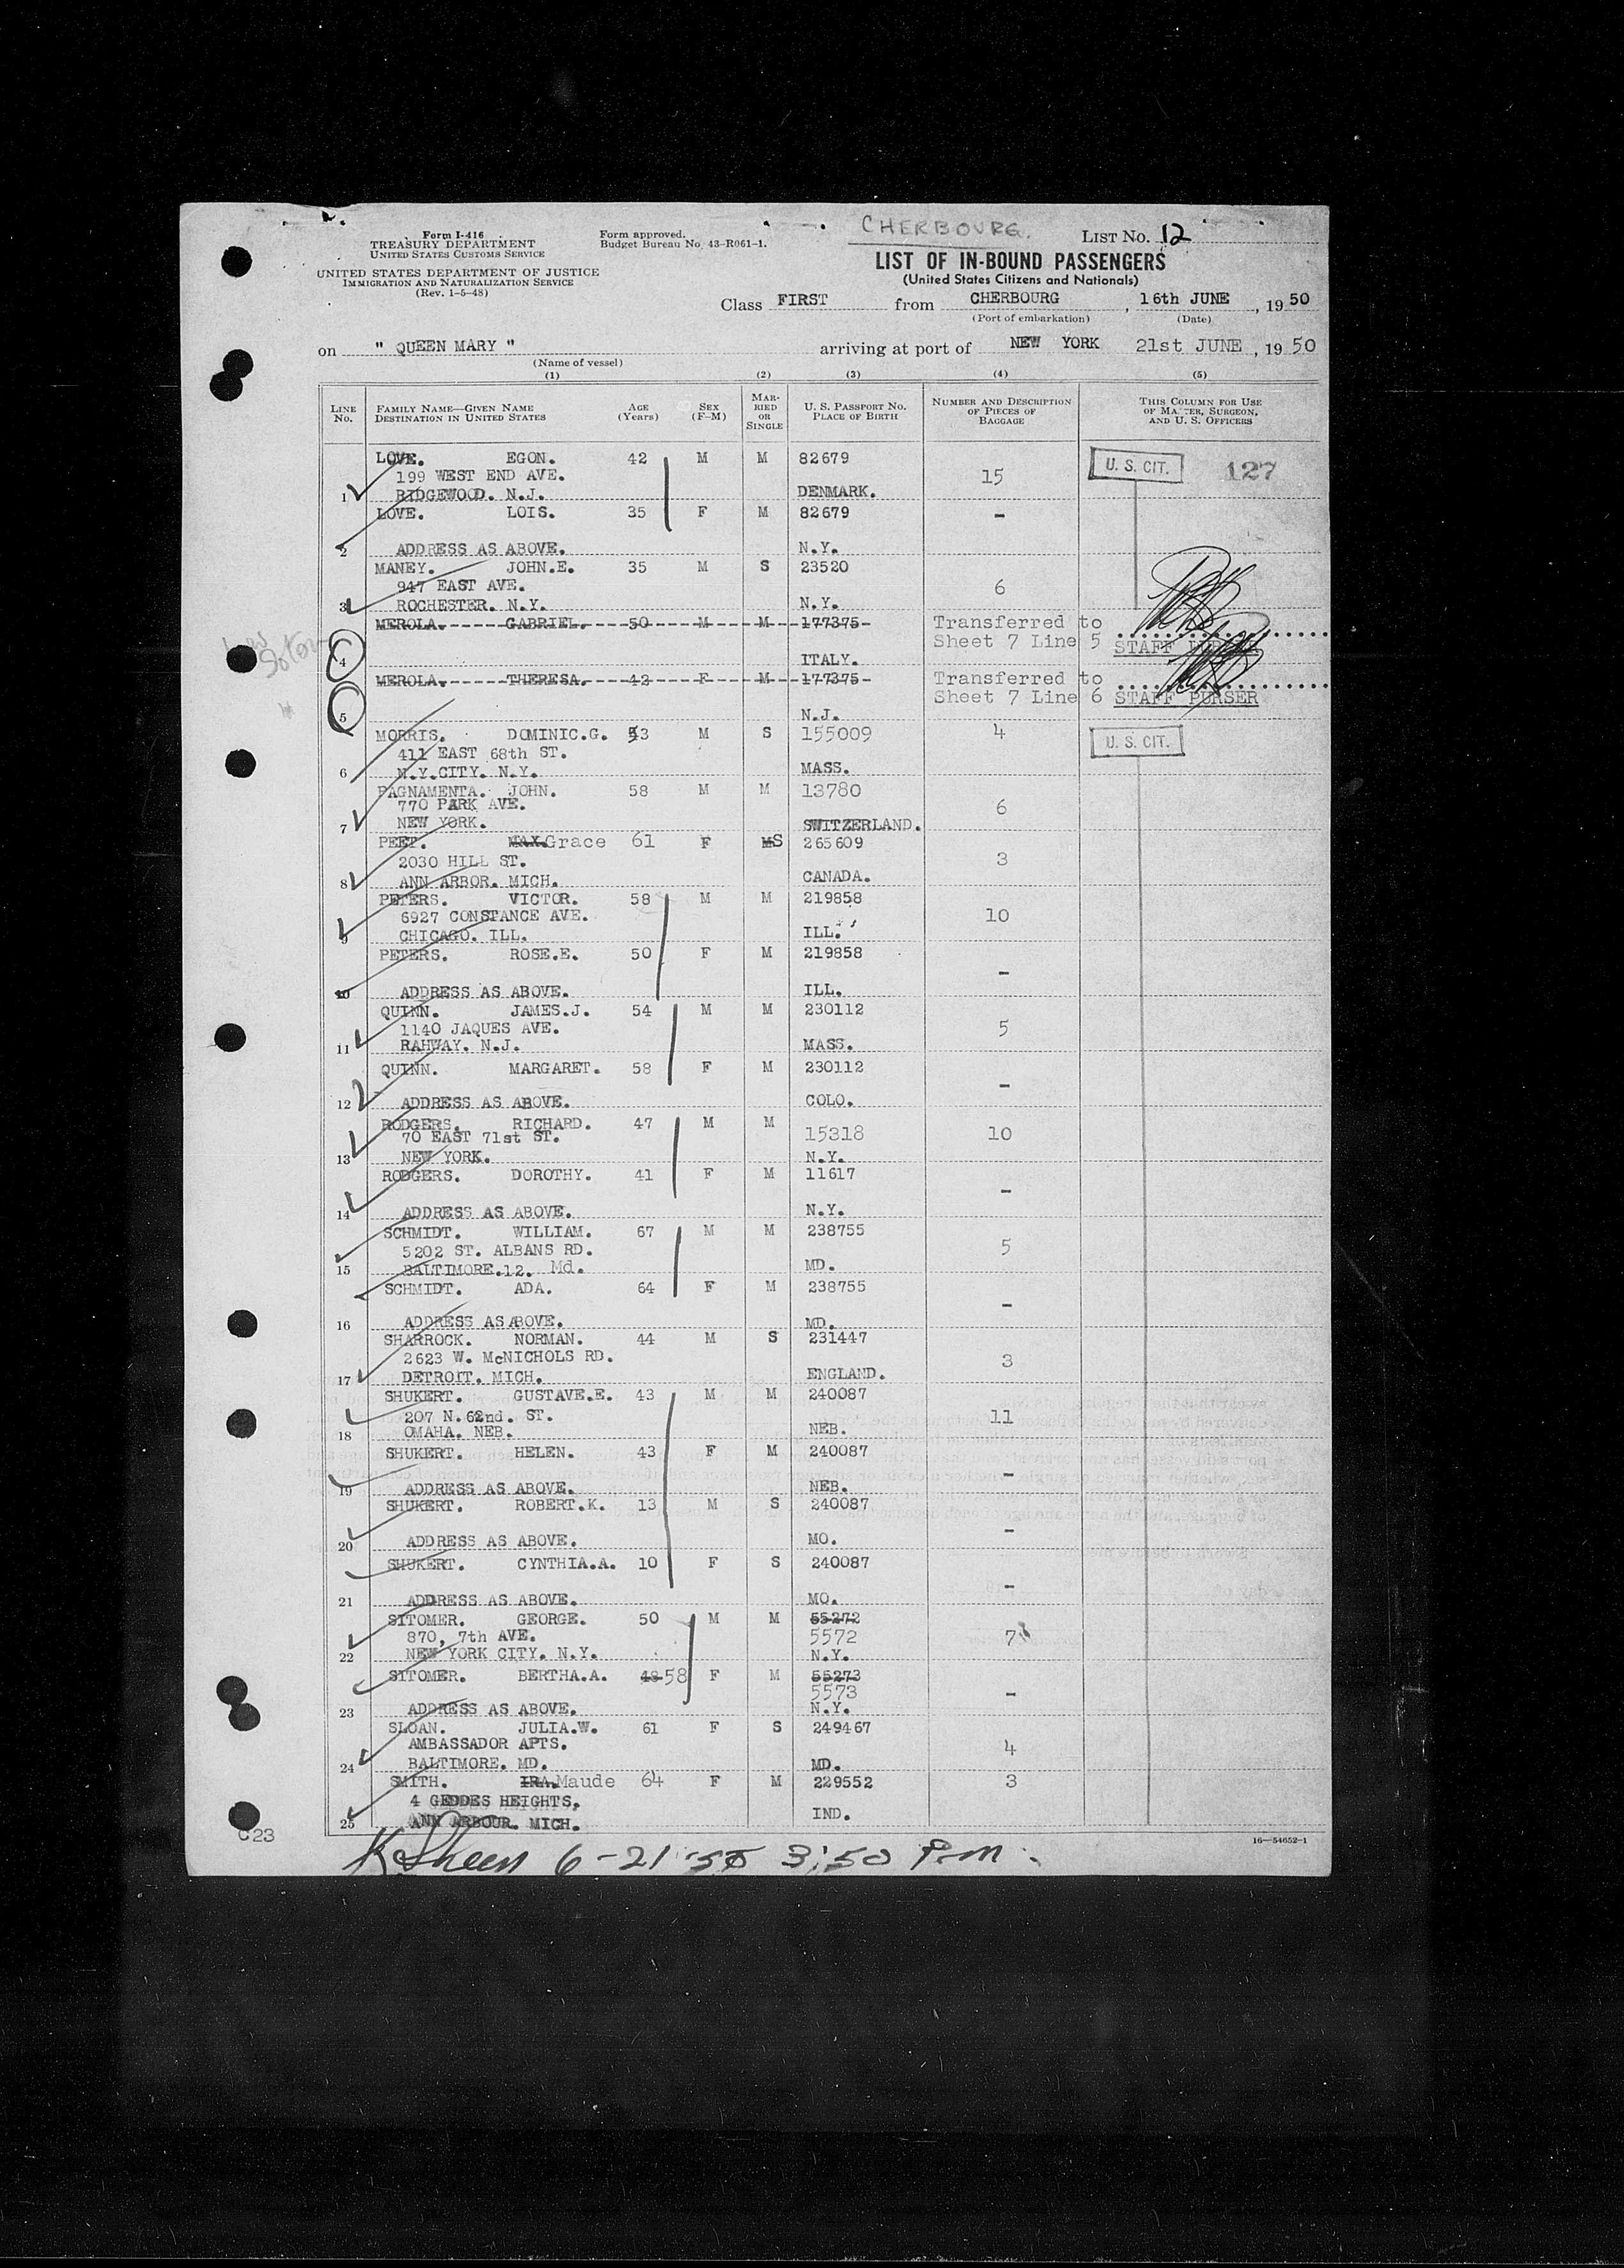 CHERBOURG.
Form I-416
TREASURY DEPARTMENT
UNITED STATES CUSTOMS SERVICE
Form approved.
Budget Bureau No. 43-R061-1.
LIST NO. 12
UNITED STATES DEPARTMENT OF JUSTICE
IMMIGRATION AND NATURALIZATION SERVICE
(Rev. 1-5-48)
LIST OF IN-BOUND PASSENGERS
(United States Citizens and Nationals)
Class FIRST from CHERBOURG, 16th JUNE, 1950
(Port of embarkation) (Date)
on " QUEEN MARY " arriving at port of NEW YORK 21st JUNE, 1950
(Name of vessel)
(1) (2) (3) (4) (5)
LINE NO. FAMILY NAME—GIVEN NAME DESTINATION IN UNITED STATES AGE (Years) SEX (F-M) MARRIED OR SINGLE U. S. PASSPORT NO. PLACE OF BIRTH NUMBER AND DESCRIPTION OF PIECES OF BAGGAGE THIS COLUMN FOR USE OF MASTER, SURGEON, AND U. S. OFFICERS
LOVE. EGON. 42 M M 82679 U. S. CIT. 127
199 WEST END AVE. 15
1 RIDGEWOOD. N.J. DENMARK.
LOVE. LOIS. 35 F M 82679 -
2 ADDRESS AS ABOVE. N.Y.
MANEY. JOHN.E. 35 M S 23520
947 EAST AVE. 6
3 ROCHESTER. N.Y. N.Y.
MEROLA. GABRIEL. 50 M M 177375 Transferred to
Sheet 7 Line 5 STAFF PURSER
4 ITALY.
MEROLA. THERESA. 42 F M 177375 Transferred to
Sheet 7 Line 6 STAFF PURSER
5 N.J.
MORRIS. DOMINIC.G. 53 M S 155009 4 U. S. CIT.
411 EAST 68th ST.
6 N.Y.CITY. N.Y. MASS.
PAGNAMENTA. JOHN. 58 M M 13780
770 PARK AVE. 6
7 NEW YORK. SWITZERLAND.
PEET. MAX. Grace 61 F MS 265609
2030 HILL ST. 3
8 ANN ARBOR. MICH. CANADA.
PETERS. VICTOR. 58 M M 219858
6927 CONSTANCE AVE. 10
9 CHICAGO. ILL. ILL.
PETERS. ROSE.E. 50 F M 219858
-
10 ADDRESS AS ABOVE. ILL.
QUINN. JAMES.J. 54 M M 230112
1140 JAQUES AVE. 5
11 RAHWAY. N.J. MASS.
QUINN. MARGARET. 58 F M 230112
-
12 ADDRESS AS ABOVE. COLO.
RODGERS. RICHARD. 47 M M
70 EAST 71st ST. 15318 10
13 NEW YORK. N.Y.
RODGERS. DOROTHY. 41 F M 11617
-
14 ADDRESS AS ABOVE. N.Y.
SCHMIDT. WILLIAM. 67 M M 238755
5202 ST. ALBANS RD. 5
15 BALTIMORE.12. Md. MD.
SCHMIDT. ADA. 64 F M 238755
-
16 ADDRESS AS ABOVE. MD.
SHARROCK. NORMAN. 44 M S 231447
2623 W. McNICHOLS RD. 3
17 DETROIT. MICH. ENGLAND.
SHUKERT. GUSTAVE.E. 43 M M 240087
207 N. 62nd. ST. 11
18 OMAHA. NEB. NEB.
SHUKERT. HELEN. 43 F M 240087
-
19 ADDRESS AS ABOVE. NEB.
SHUKERT. ROBERT.K. 13 M S 240087
-
20 ADDRESS AS ABOVE. MO.
SHUKERT. CYNTHIA.A. 10 F S 240087
-
21 ADDRESS AS ABOVE. MO.
SITOMER. GEORGE. 50 M M 55272
870, 7th AVE. 5572 7
22 NEW YORK CITY. N.Y. N.Y.
SITOMER. BERTHA.A. 48 58 F M 55273
5573 -
23 ADDRESS AS ABOVE. N.Y.
SLOAN. JULIA.W. 61 F S 249467
AMBASSADOR APTS. 4
24 BALTIMORE. MD. MD.
SMITH. IRA. Maude 64 F M 229552 3
4 GEDDES HEIGHTS,
25 ANN ARBOUR. MICH. IND.
C23
16—54652-1
6-21-50 3:50 P.m.